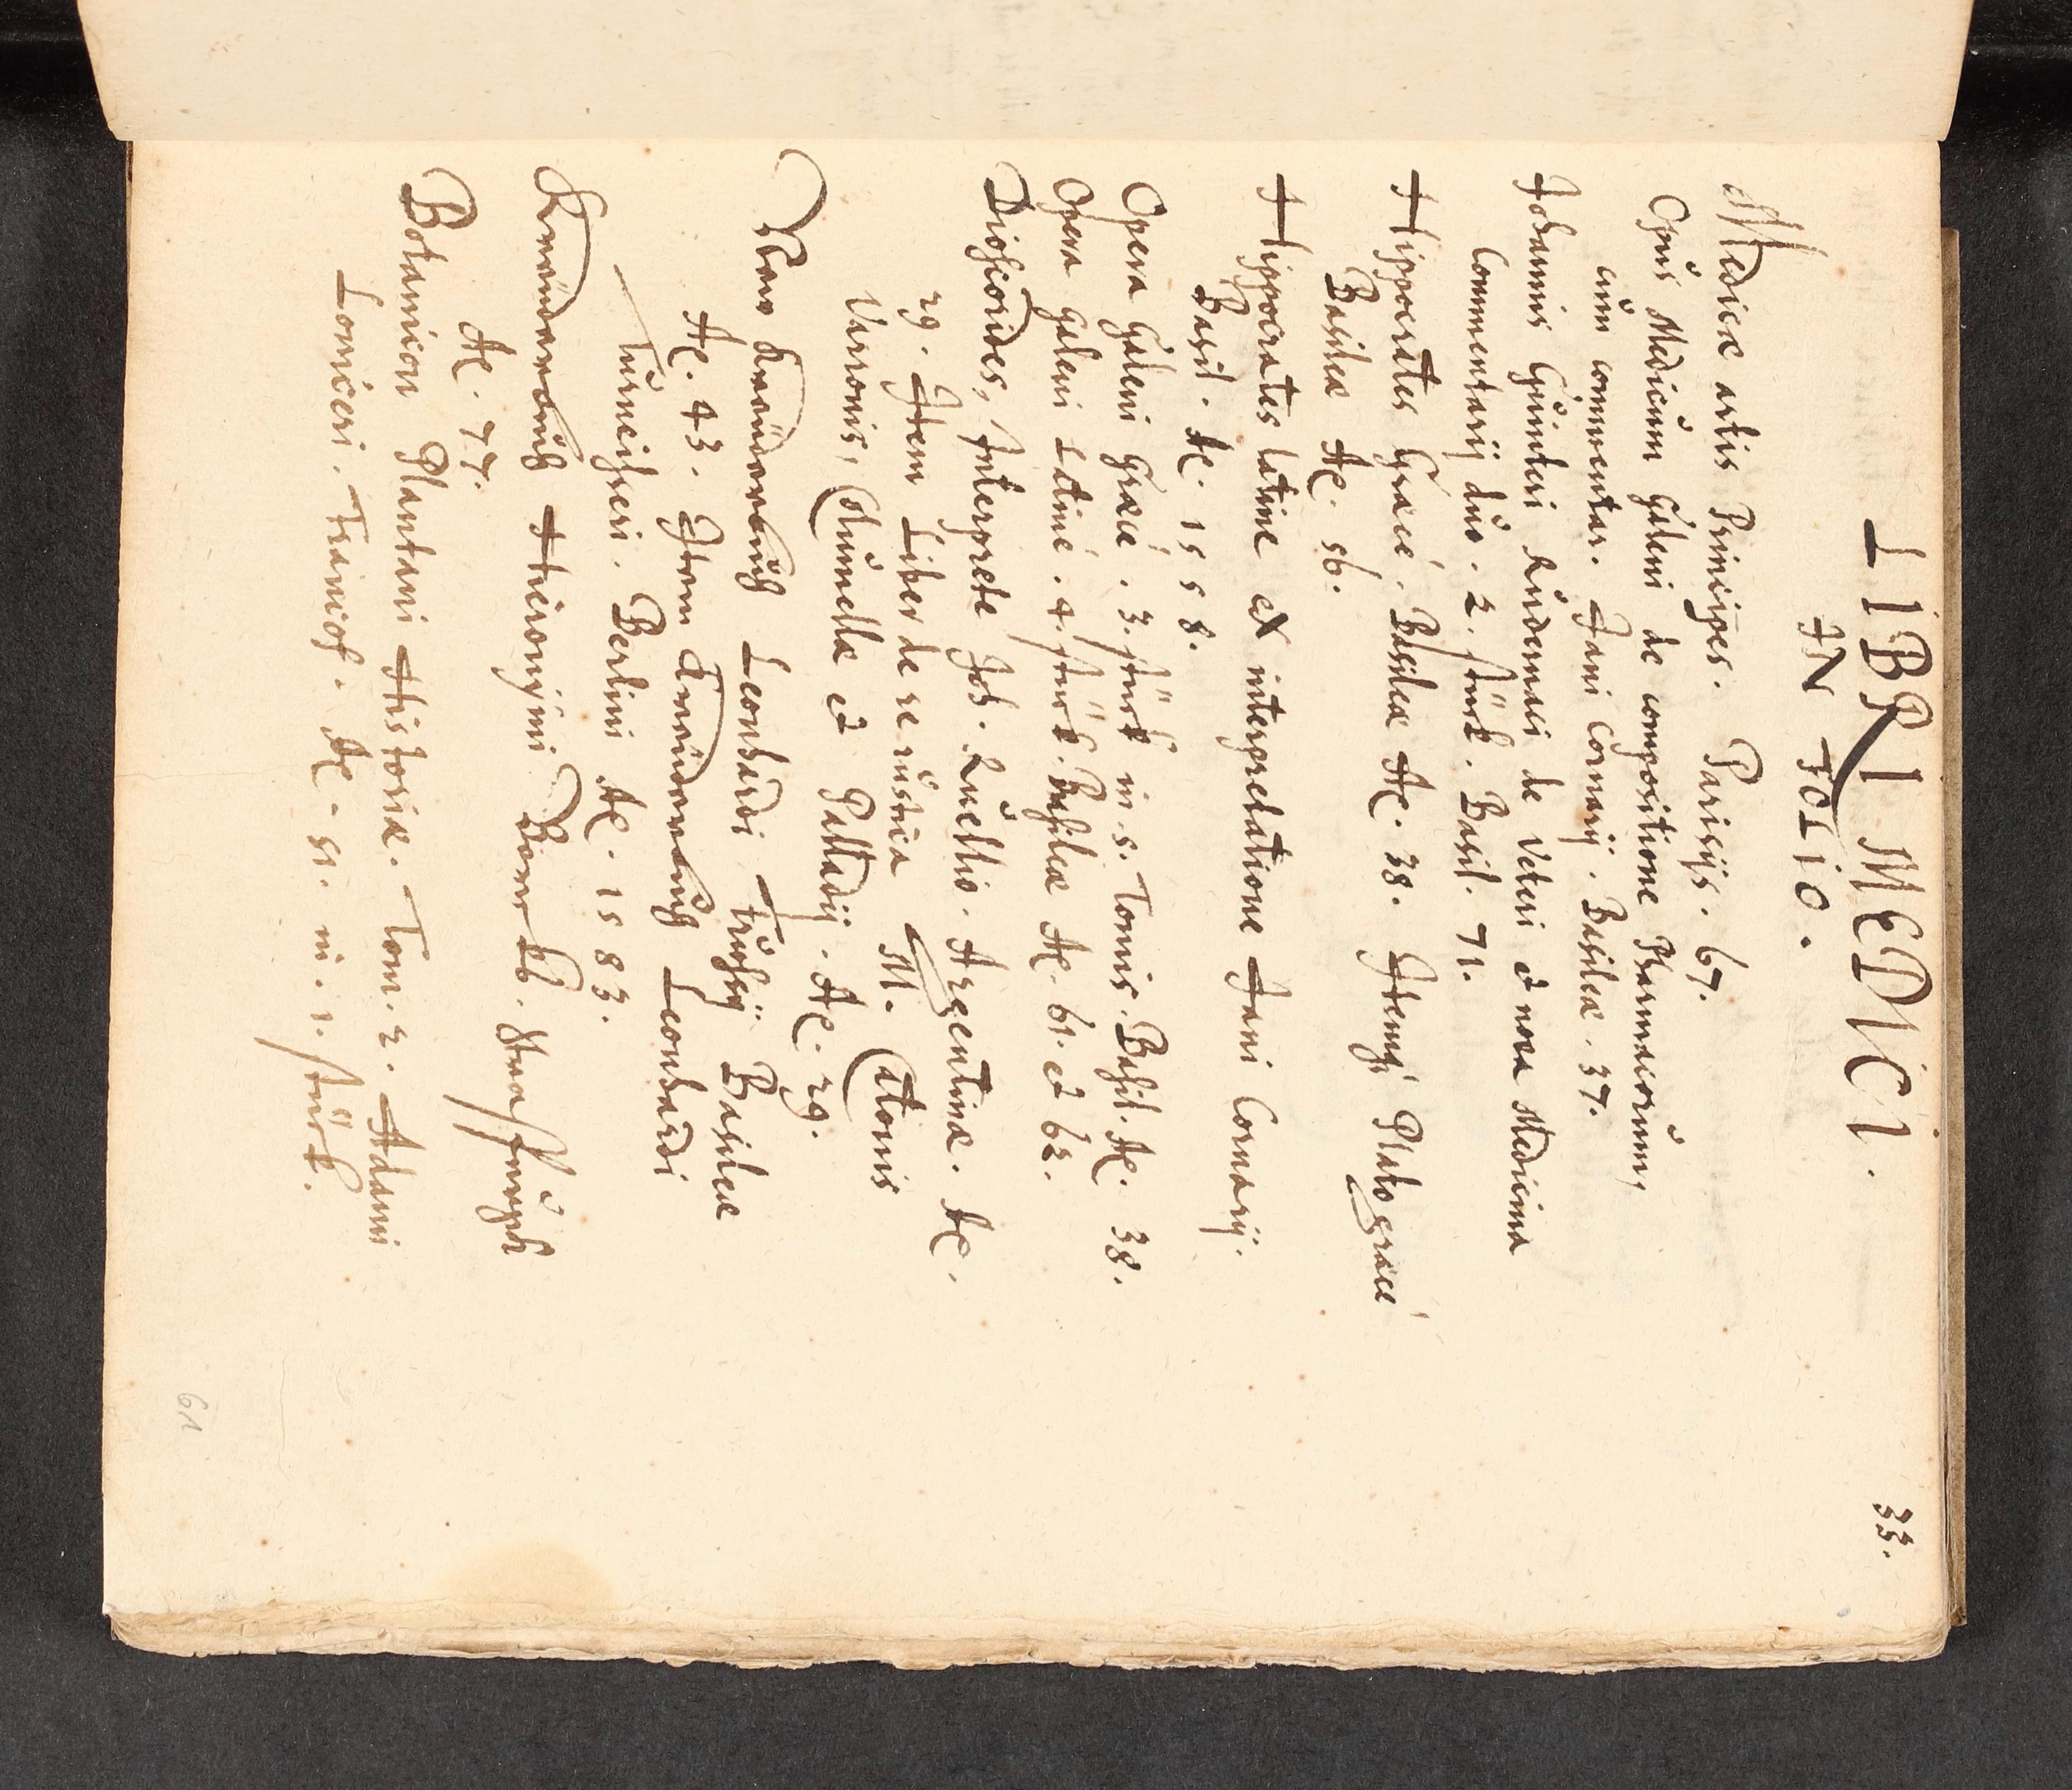 33.
LIBRI MEDICI.
IN FOLIO.
Medicæ artis Principes. Parisijs. 67.
Opus Medicum Galeni de compositione Pharmacorum
cum commentar. Jani Cornarij. Basileæ. 37.
Johannis Guinteri Andernaci de Veteri et nova Medicina
Commentarij duo. 2. stück. Basil. 71.
Hippocrates Græcè. Basileæ Aº. 38. Item Plato græcè
Basileæ Aº. 56.
Hippocrates latine ex interpretatione Jani Cornarij.
Basil. Aº. 1558.
Opera Galeni Græcè. 3. stück in 5. Tomis. Basil. Aº. 38.
Opera Galeni Latinè. 4. stück. Basileæ Aº. 61. et 62.
Dioscorides, Interprete Joh. Ruellio. Argentinæ. Aº.
29. Item Liber de re rustica M. Catonis
Varronis, Columellæ et Palladij. Aº. 29.
New Kreüterbuch Leonhardi Fuchsij Basileæ
Aº. 43. Item Kreüterbuch Leonhardi
Turneisseri. Berlini Aº. 1583.
Kreüterbuch Hieronÿmi Strassburgk
Aº. 77.
Botanicon Plantarum Historiæ. Tom. 2. Adami
Loniceri. Francof. Aº. 51. in. 1. stück.
61